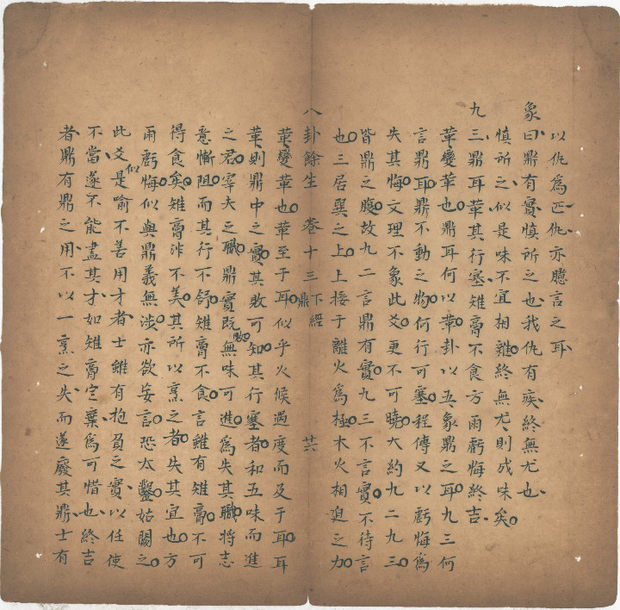 以仇爲匹仇亦臆言之耳
象曰鼎有實慎所之也我仇有疾終無尤也
慎所之似是味不宜相雜終無尤則成味矣
九三鼎耳革其行塞雉膏不食方雨虧悔終吉
革變革也鼎耳何以革卦以五象鼎之耳九三何
言鼎耳鼎不動之物何行可塞程傳又以虧悔爲
失其悔文理不象此爻更不可曉大約九二九三
皆鼎之腹故九二言鼎有實九三不言實不待言
也三居巽之上上接于離火爲極木火相迫之力
八卦餘生 卷十三 下經 鼎 廿六
革變革也革至于耳似乎火候過度而及于耳耳
革則鼎中之實其敗可知其行塞者和五味而進
之君宰夫之職鼎實既無味可進爲失其職將志
意慚阻而其行不舒雉膏不食言雖有雉膏不可
得食矣雉膏非不美其所以烹之者失其宜也方
雨虧悔似與鼎義無涉亦欲妄言恐太鑿姑闕之
此爻似是喻不善用才者士雖有抱負之實以任使
不當遂不能盡其才如雉膏空棄爲可惜也終吉
者鼎有鼎之用不以一烹之失而遂廢其鼎士有